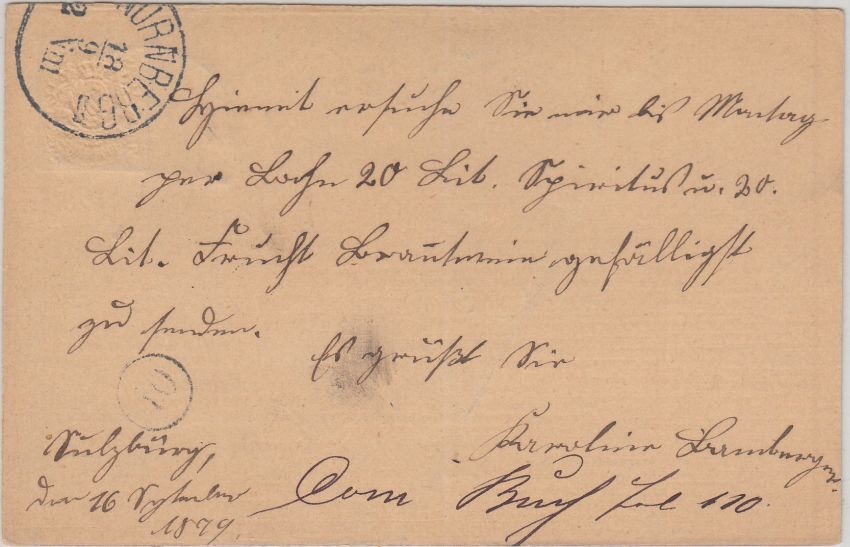 NÜRNBERG I
18/9
Hiemit ersuche Sie mir bis Montag
per Bahn 20 Lit. Spiritus u. 20.
Lit. Frucht Brantwein gefälligst
zu senden.
Es grüßt Sie
Karoline Bamberger.
Sulzbürg,
den 16 September
1879.
Com Buch fol 110.